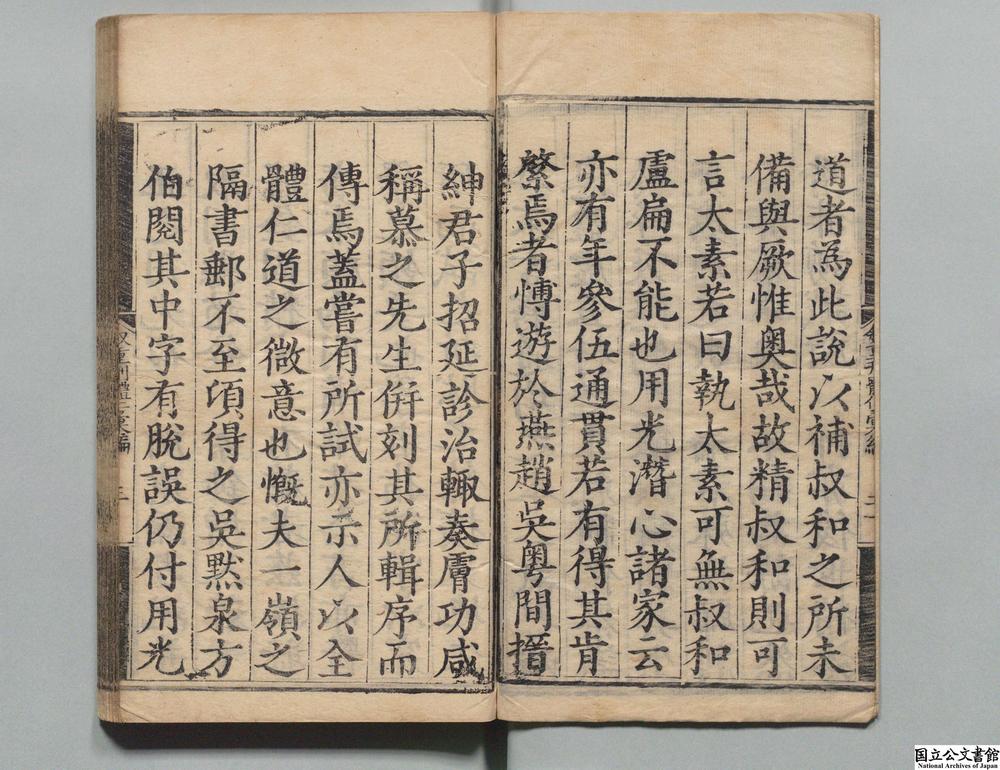 道者為此說以補叔和之所未
備與厥惟奧哉故精叔和則可
言太素若曰執太素可無叔和
盧扁不能也用光潛心諸家云
亦有年參伍通貫若有得其肯
綮焉者愽遊於燕趙吳粤間搢
紳君子招延診治輙奏膚功咸
稱慕之先生倂刻其所輯序而
傳焉蓋嘗有所試亦示人以全
體仁道之微意也慨夫一嶺之
隔書郵不至頃得之吳黙泉方
伯閱其中字有脫誤仍付用光
国立公文書館
National Archives of Japan